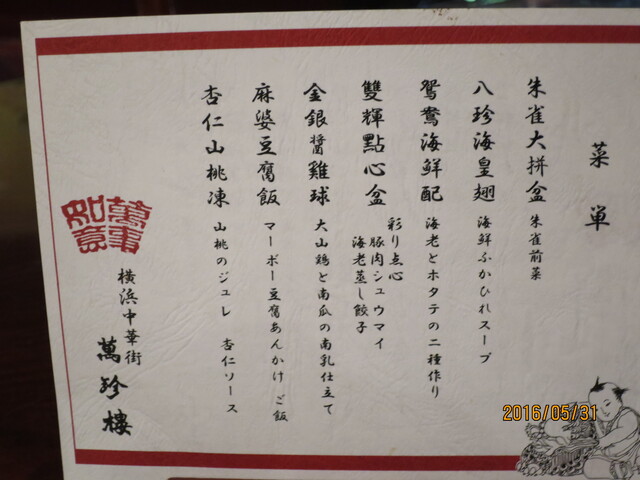 菜単
朱雀大拼盆 朱雀前菜
八珍海皇翅 海鮮ふかひれスープ
鴛鴦海鮮配 海老とホタテの二種作り
雙輝點心盆 彩り点心
豚肉シュウマイ
海老蒸し餃子
金銀醬雞球 大山鶏と南瓜の南乳仕立て
麻婆豆腐飯 マーボー豆腐あんかけご飯
杏仁山桃凍 山桃のジュレ 杏仁ソース
萬事如意
横浜中華街
萬珍樓
2016/05/31